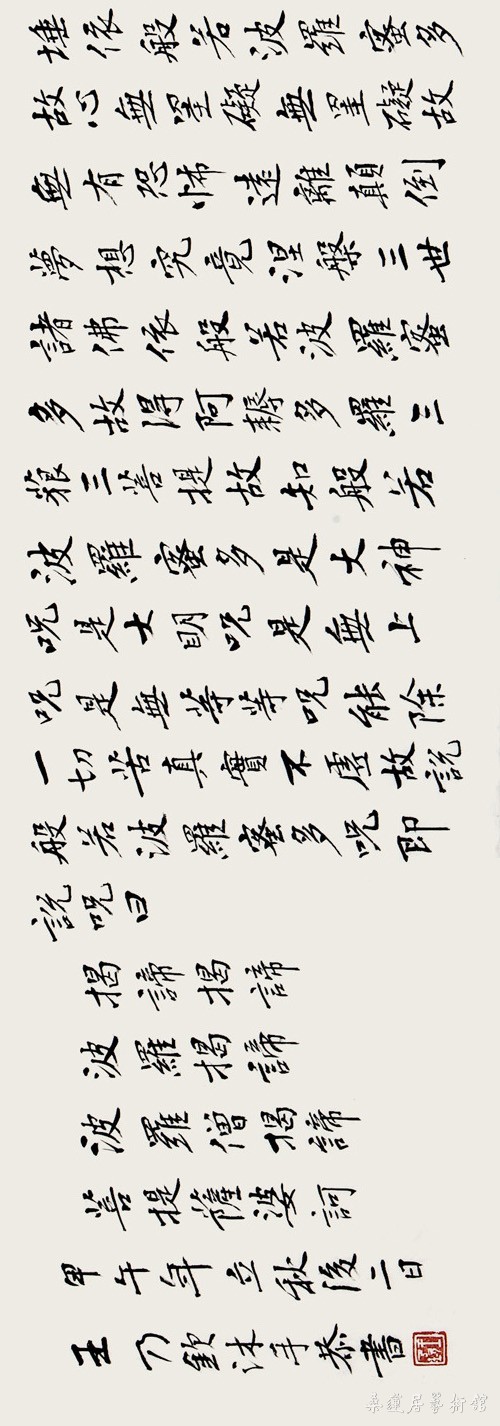 埵依般若波羅蜜多
故心無罣礙無罣礙故
無有恐怖遠離顛倒
夢想究竟涅槃三世
諸佛依般若波羅蜜
多故得阿耨多羅三
藐三菩提故知般若
波羅蜜多是大神
咒是大明咒是無上
咒是無等等咒能除
一切苦真實不虛故說
般若波羅蜜多咒即
說咒曰
揭諦揭諦
波羅揭諦
波羅僧揭諦
菩提薩婆訶
甲午年立秋後二日
王乃欽沐手恭書
菜蓮居藝術館